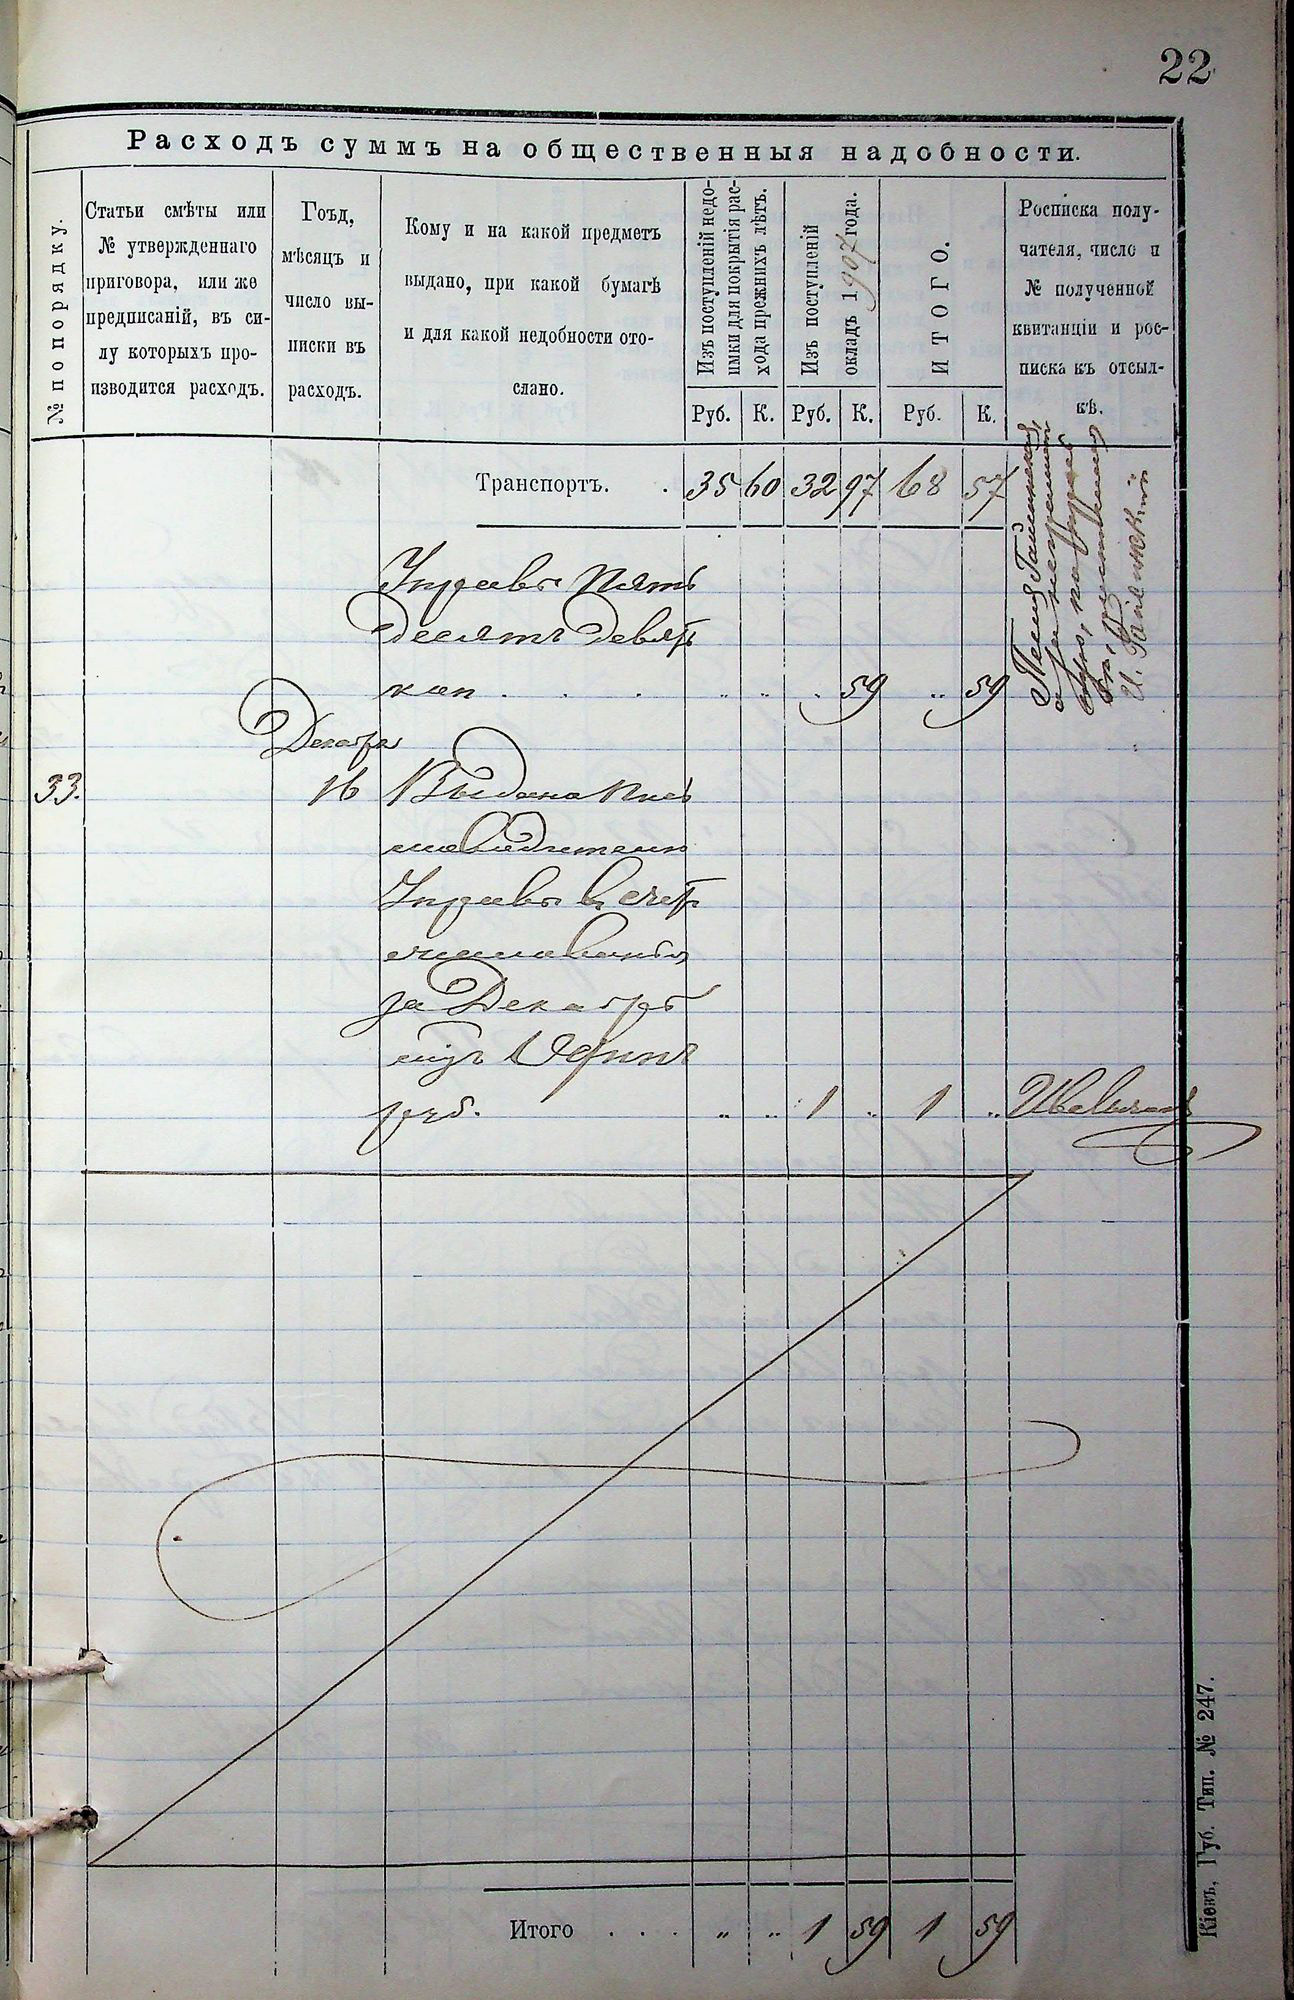 22
Расходъ суммъ на общественныя надобности.
№ по порядку.
Статьи смѣты или
№ утвержденнаго
приговора, или же
предписаній, въ си-
лу которыхъ про-
изводится расходъ.
Гоъд,
мѣсяцъ и
число вы-
писки въ
расходъ.
Кому и на какой предметъ
выдано, при какой бумагѣ
и для какой недобности ото-
слано.
Изъ поступленій недо-
имки для покрытія рас-
хода прежнихъ лѣтъ.
Изъ поступленій
окладъ 1907 года.
ИТОГО.
Росписка полу-
чателя, число и
№ полученной
квитанціи и рос-
писка къ отсыл-
кѣ.
Руб. К. Руб. К. Руб. К.
Транспортъ. . 35 60 32 97 68 57
Управы пять
десятъ девять
коп . . . „ „ . 59 „ 59
Декабря
33. 16 Выдано пись
моводителю
Управы въ счетъ
жалованья
за Декабрь
мцъ Одинъ
руб. „ „ 1 „ 1 „
Итого . . . „ „ 1 59 1 59
Кіевъ, Губ. Тип. № 247.